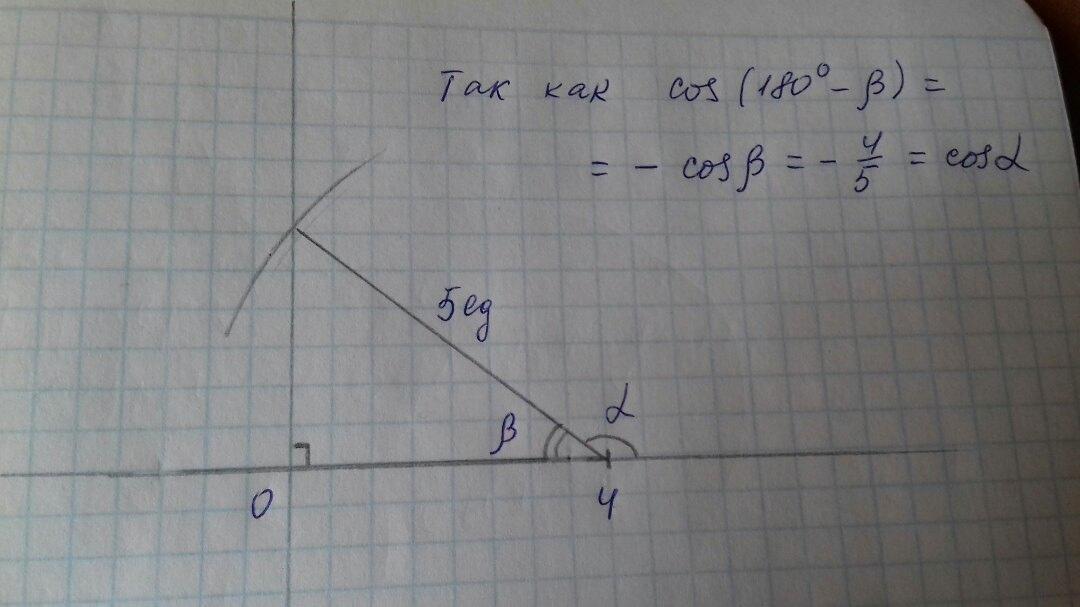 Так как cos (180° - β) =
= - cos β = - 4/5 = cos α
5 ед
β
α
0
4